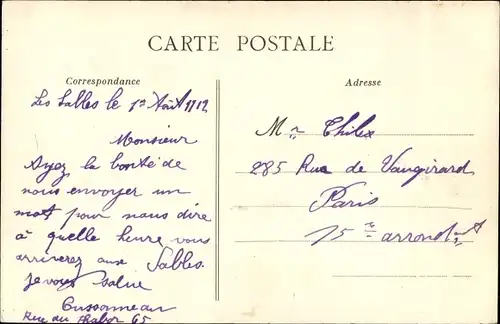 CARTE POSTALE
Correspondance
Les Sables le 12 Août 1912
Monsieur
Ayez la bonté de
nous envoyer un
mot pour nous dire
à quelle heure vous
arriverez aux Sables.
Je vous salue
Rue du Thabor 65
Adresse
Mr Thilex
285 Rue de Vaugirard
Paris
15me arrondt